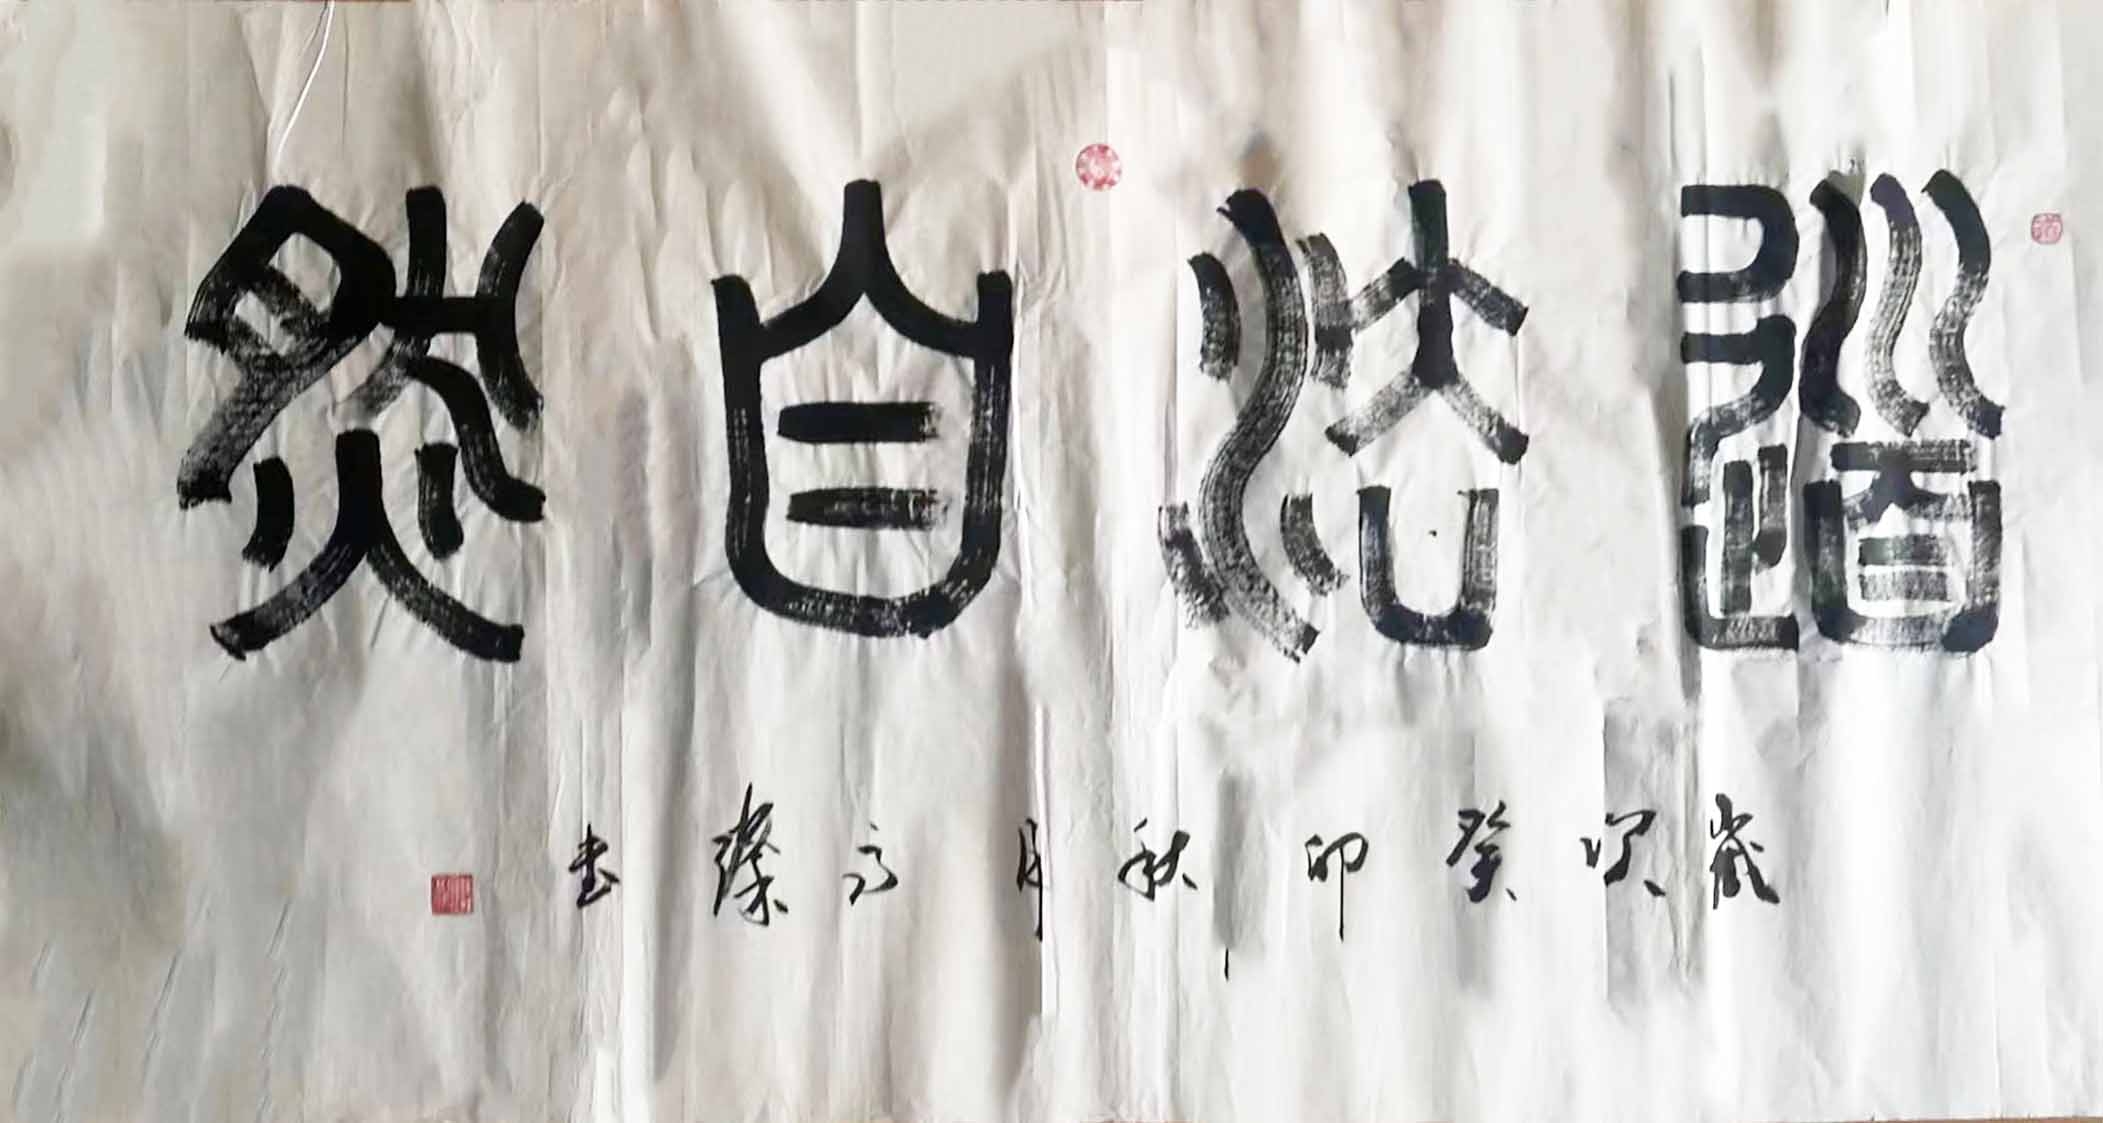 道法自然
岁次癸卯秋月方傑书